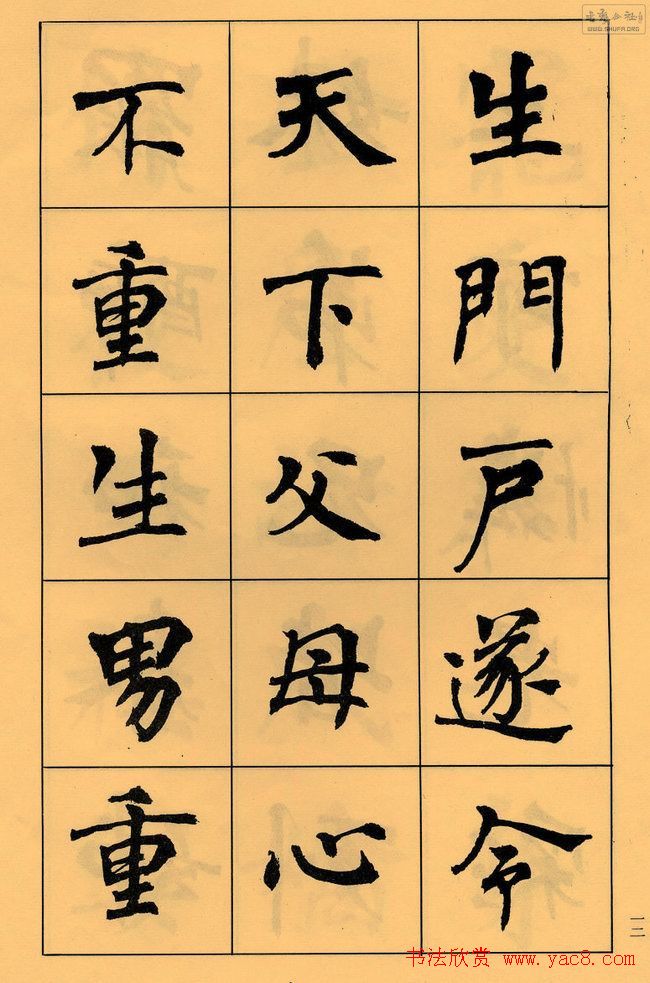 生門户遂令
天下父母心
不重生男重
一二
書藝公社
WWW.SHUFA.ORG
书法欣赏 www.yac8.com